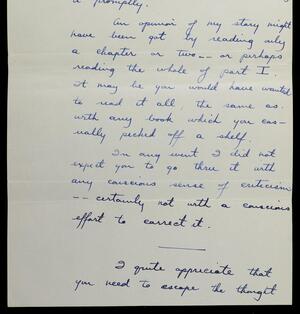 it promptly.
An opinion of my story might
have been got by reading only
a chapter or two -- or perhaps
reading the whole of part I.
It may be you would have wanted
to read it all the same as
with any book which you cas-
ually picked off a shelf.
In any event I did not
expect you to go thru it with
any conscious sense of criticism
-- certainly not with a conscious
effort to correct it.
I quite appreciate that
you need to escape the thought